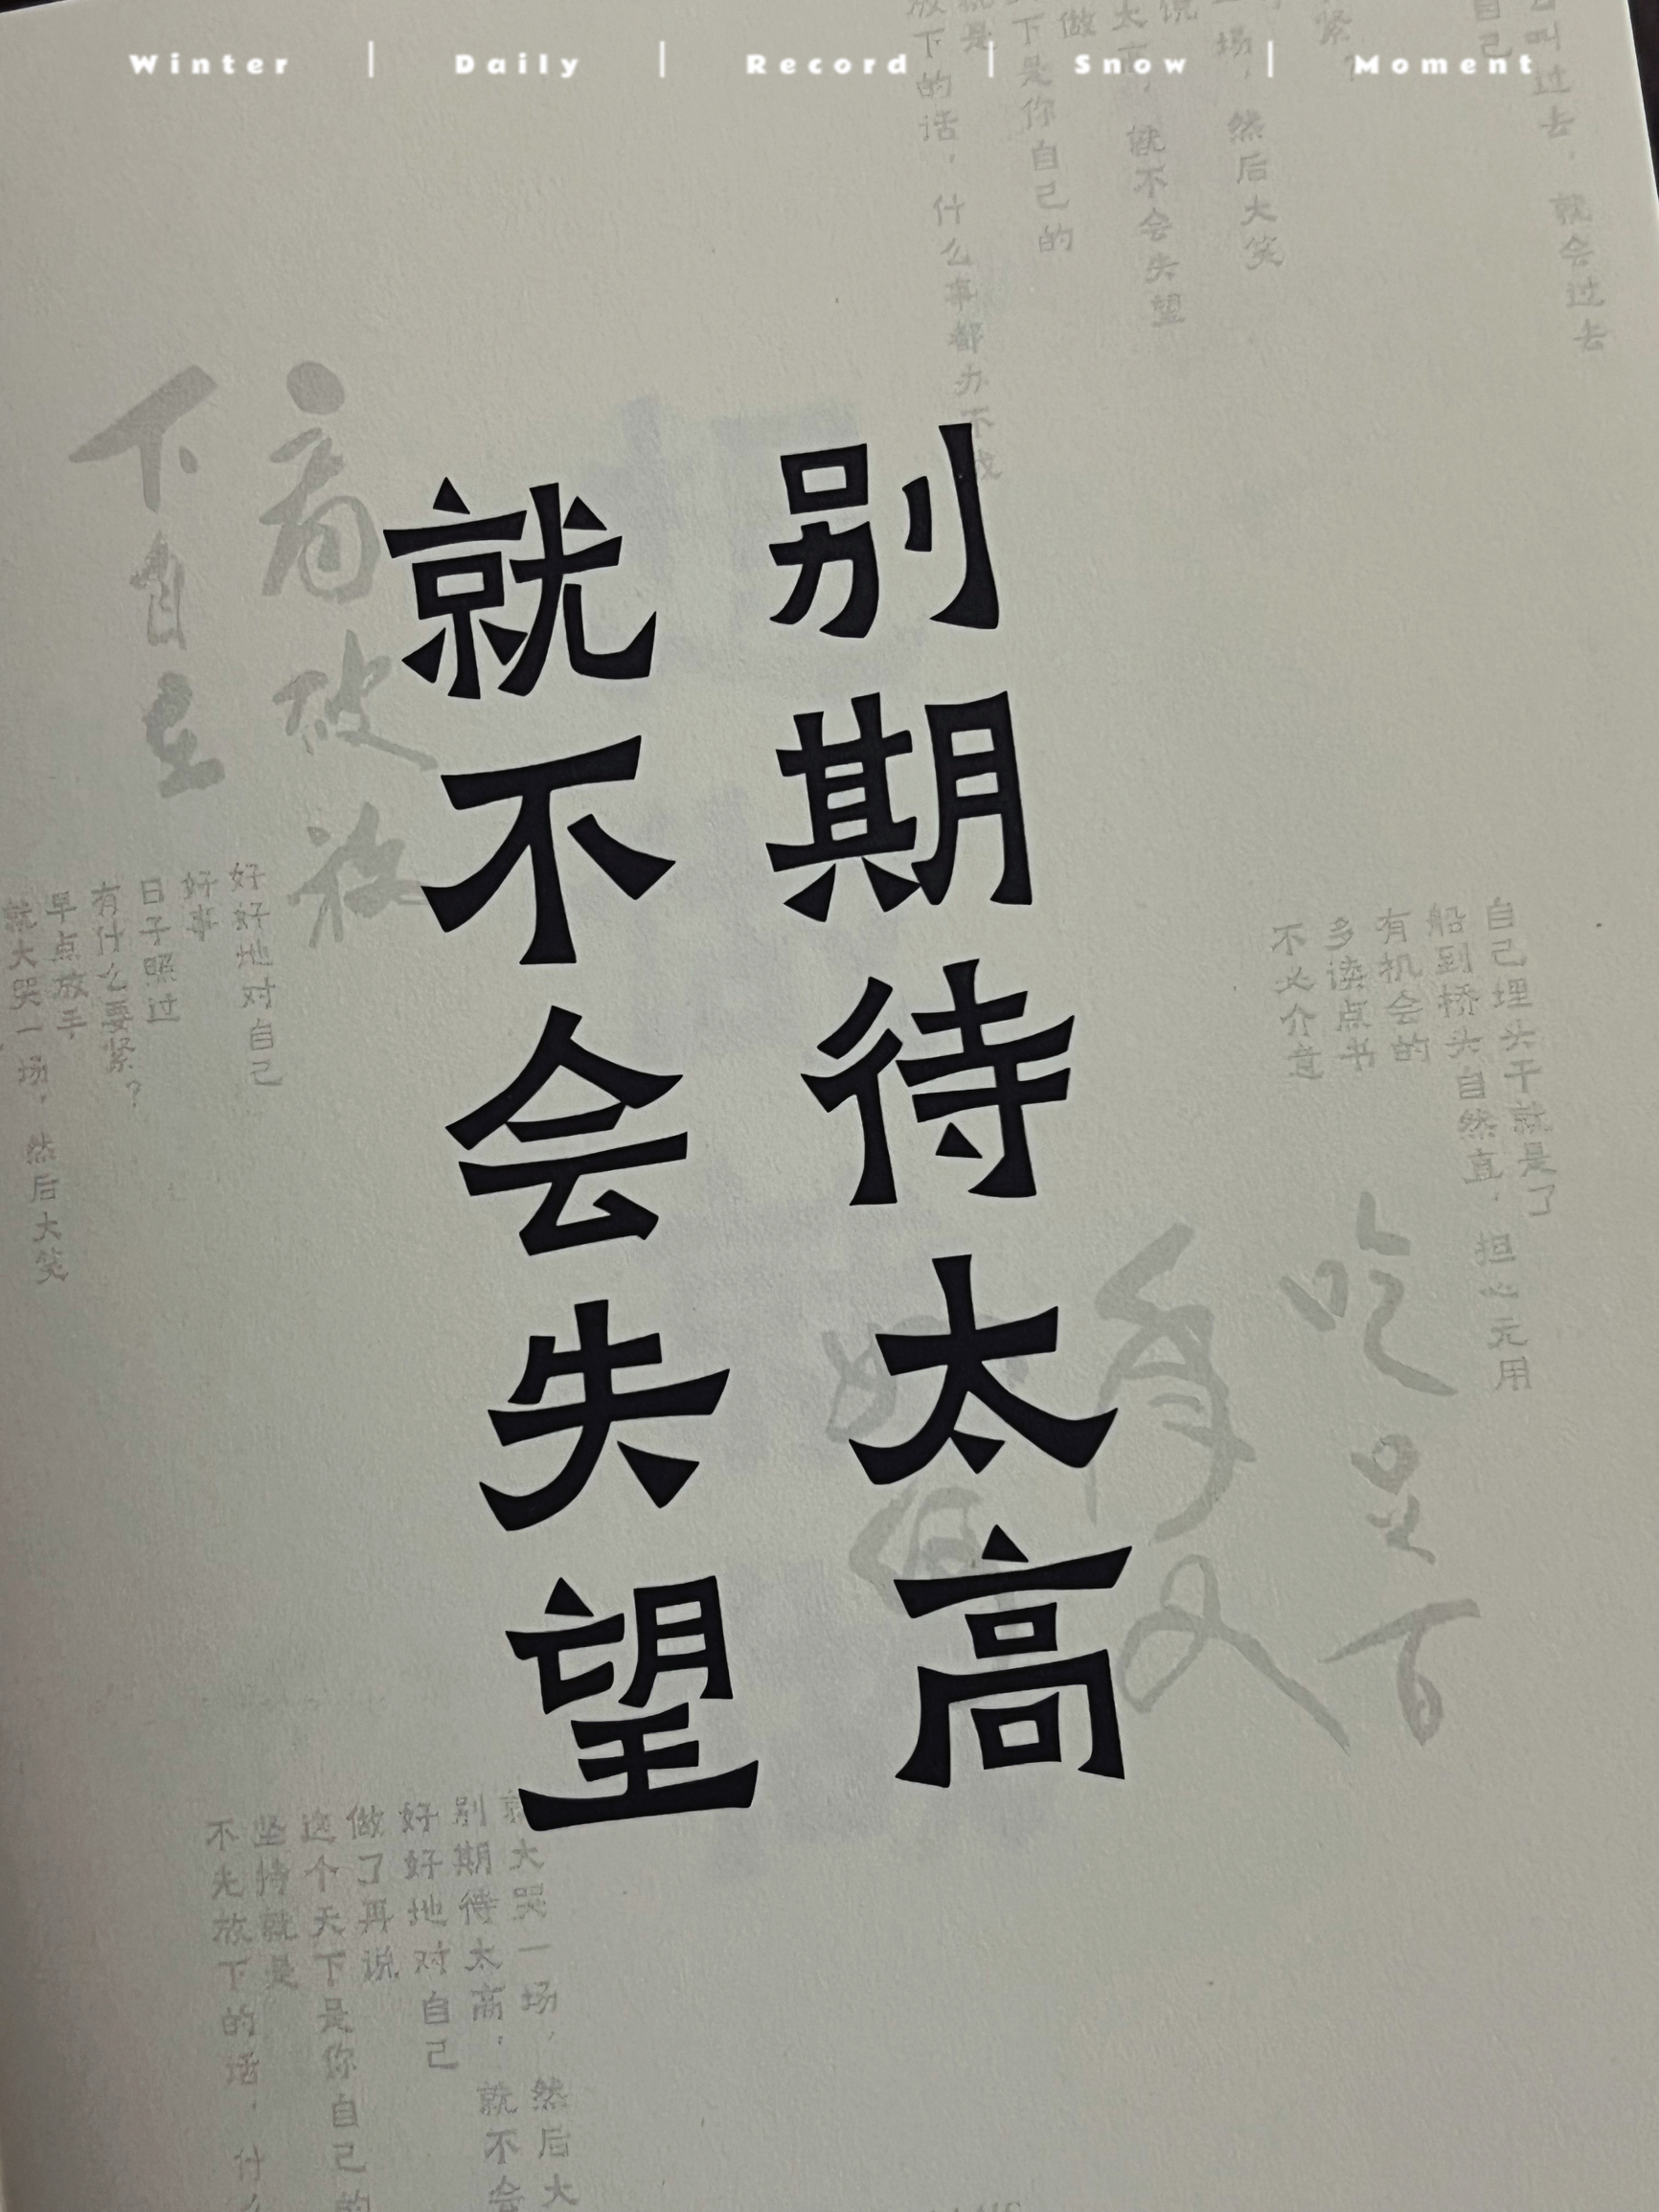 Winter | Daily | Record | Snow | Moment
别期待太高
就不会失望
过去，就会过去
自己
紧？
场，然后大笑
太高，就不会失望
做
下是你自己的
就是
放下的话，什么事都办不成
看破放
下自在
好好地对自己
好事
日子照过
有什么要紧？
早点放手
就大哭一场，然后大笑
自己埋头干就是了
船到桥头自然直，担心无用
有机会的
多读点书
不必介意
就大哭一场，然后大
别期待太高，就不会
好好地对自己
做了再说
这个天下是你自己的
坚持就是
不先放下的话，什么